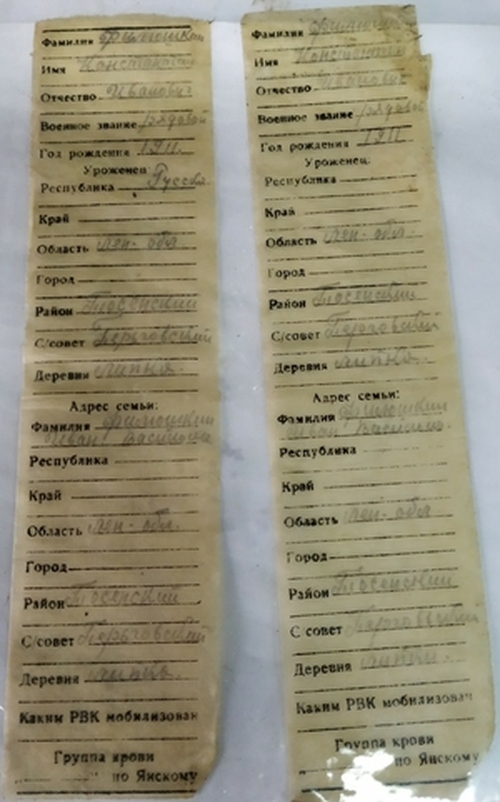 Фамилия Филюшкин
Имя Константин
Отчество Иванович
Военное звание рядовой
Год рождения 1911.
Уроженец:
Республика Русск.
Край
Область Лен-обл.
Город
Район Тосенский
С/совет
Деревня Липка.
Адрес семьи:
Фамилия Филюшкин
Иван Василь
Республика
Край
Область Лен-обл.
Город
Район Тосенский
С/совет
Деревня Липка.
Каким РВК мобилизован
Группа крови
по Янскому
Фамилия Филюшкин
Имя Константин
Отчество Иванович
Военное звание рядовой
Год рождения 1911
Уроженец:
Республика
Край
Область Лен-обл.
Город
Район Тосенский
С/совет
Деревня Липка.
Адрес семьи:
Фамилия Филюшкин
Иван Василь
Республика
Край
Область Лен-обл
Город
Район Тосенский
С совет
Деревня Липка.
Каким РВК мобилизован
Группа крови
по Янскому